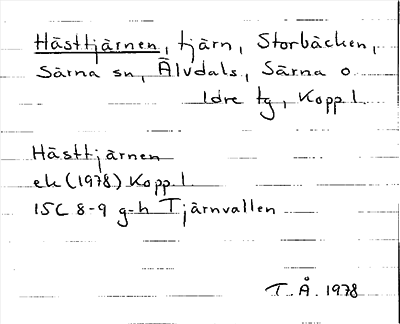 Hästtjärnen, tjärn, Storbäcken,
Särna sn, Älvdals, Särna o
Idre tg, Kopp. l.
Hästtjärnen
ek (1978) Kopp. l.
15C 8-9 g-h Tjärnvallen
T. Å. 1978